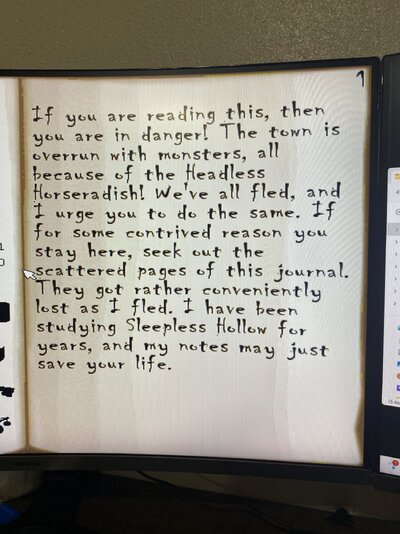 1
If you are reading this, then
you are in danger! The town is
overrun with monsters, all
because of the Headless
Horseradish! We've all fled, and
I urge you to do the same. If
for some contrived reason you
stay here, seek out the
scattered pages of this journal.
They got rather conveniently
lost as I fled. I have been
studying Sleepless Hollow for
years, and my notes may just
save your life.
SAMSUNG